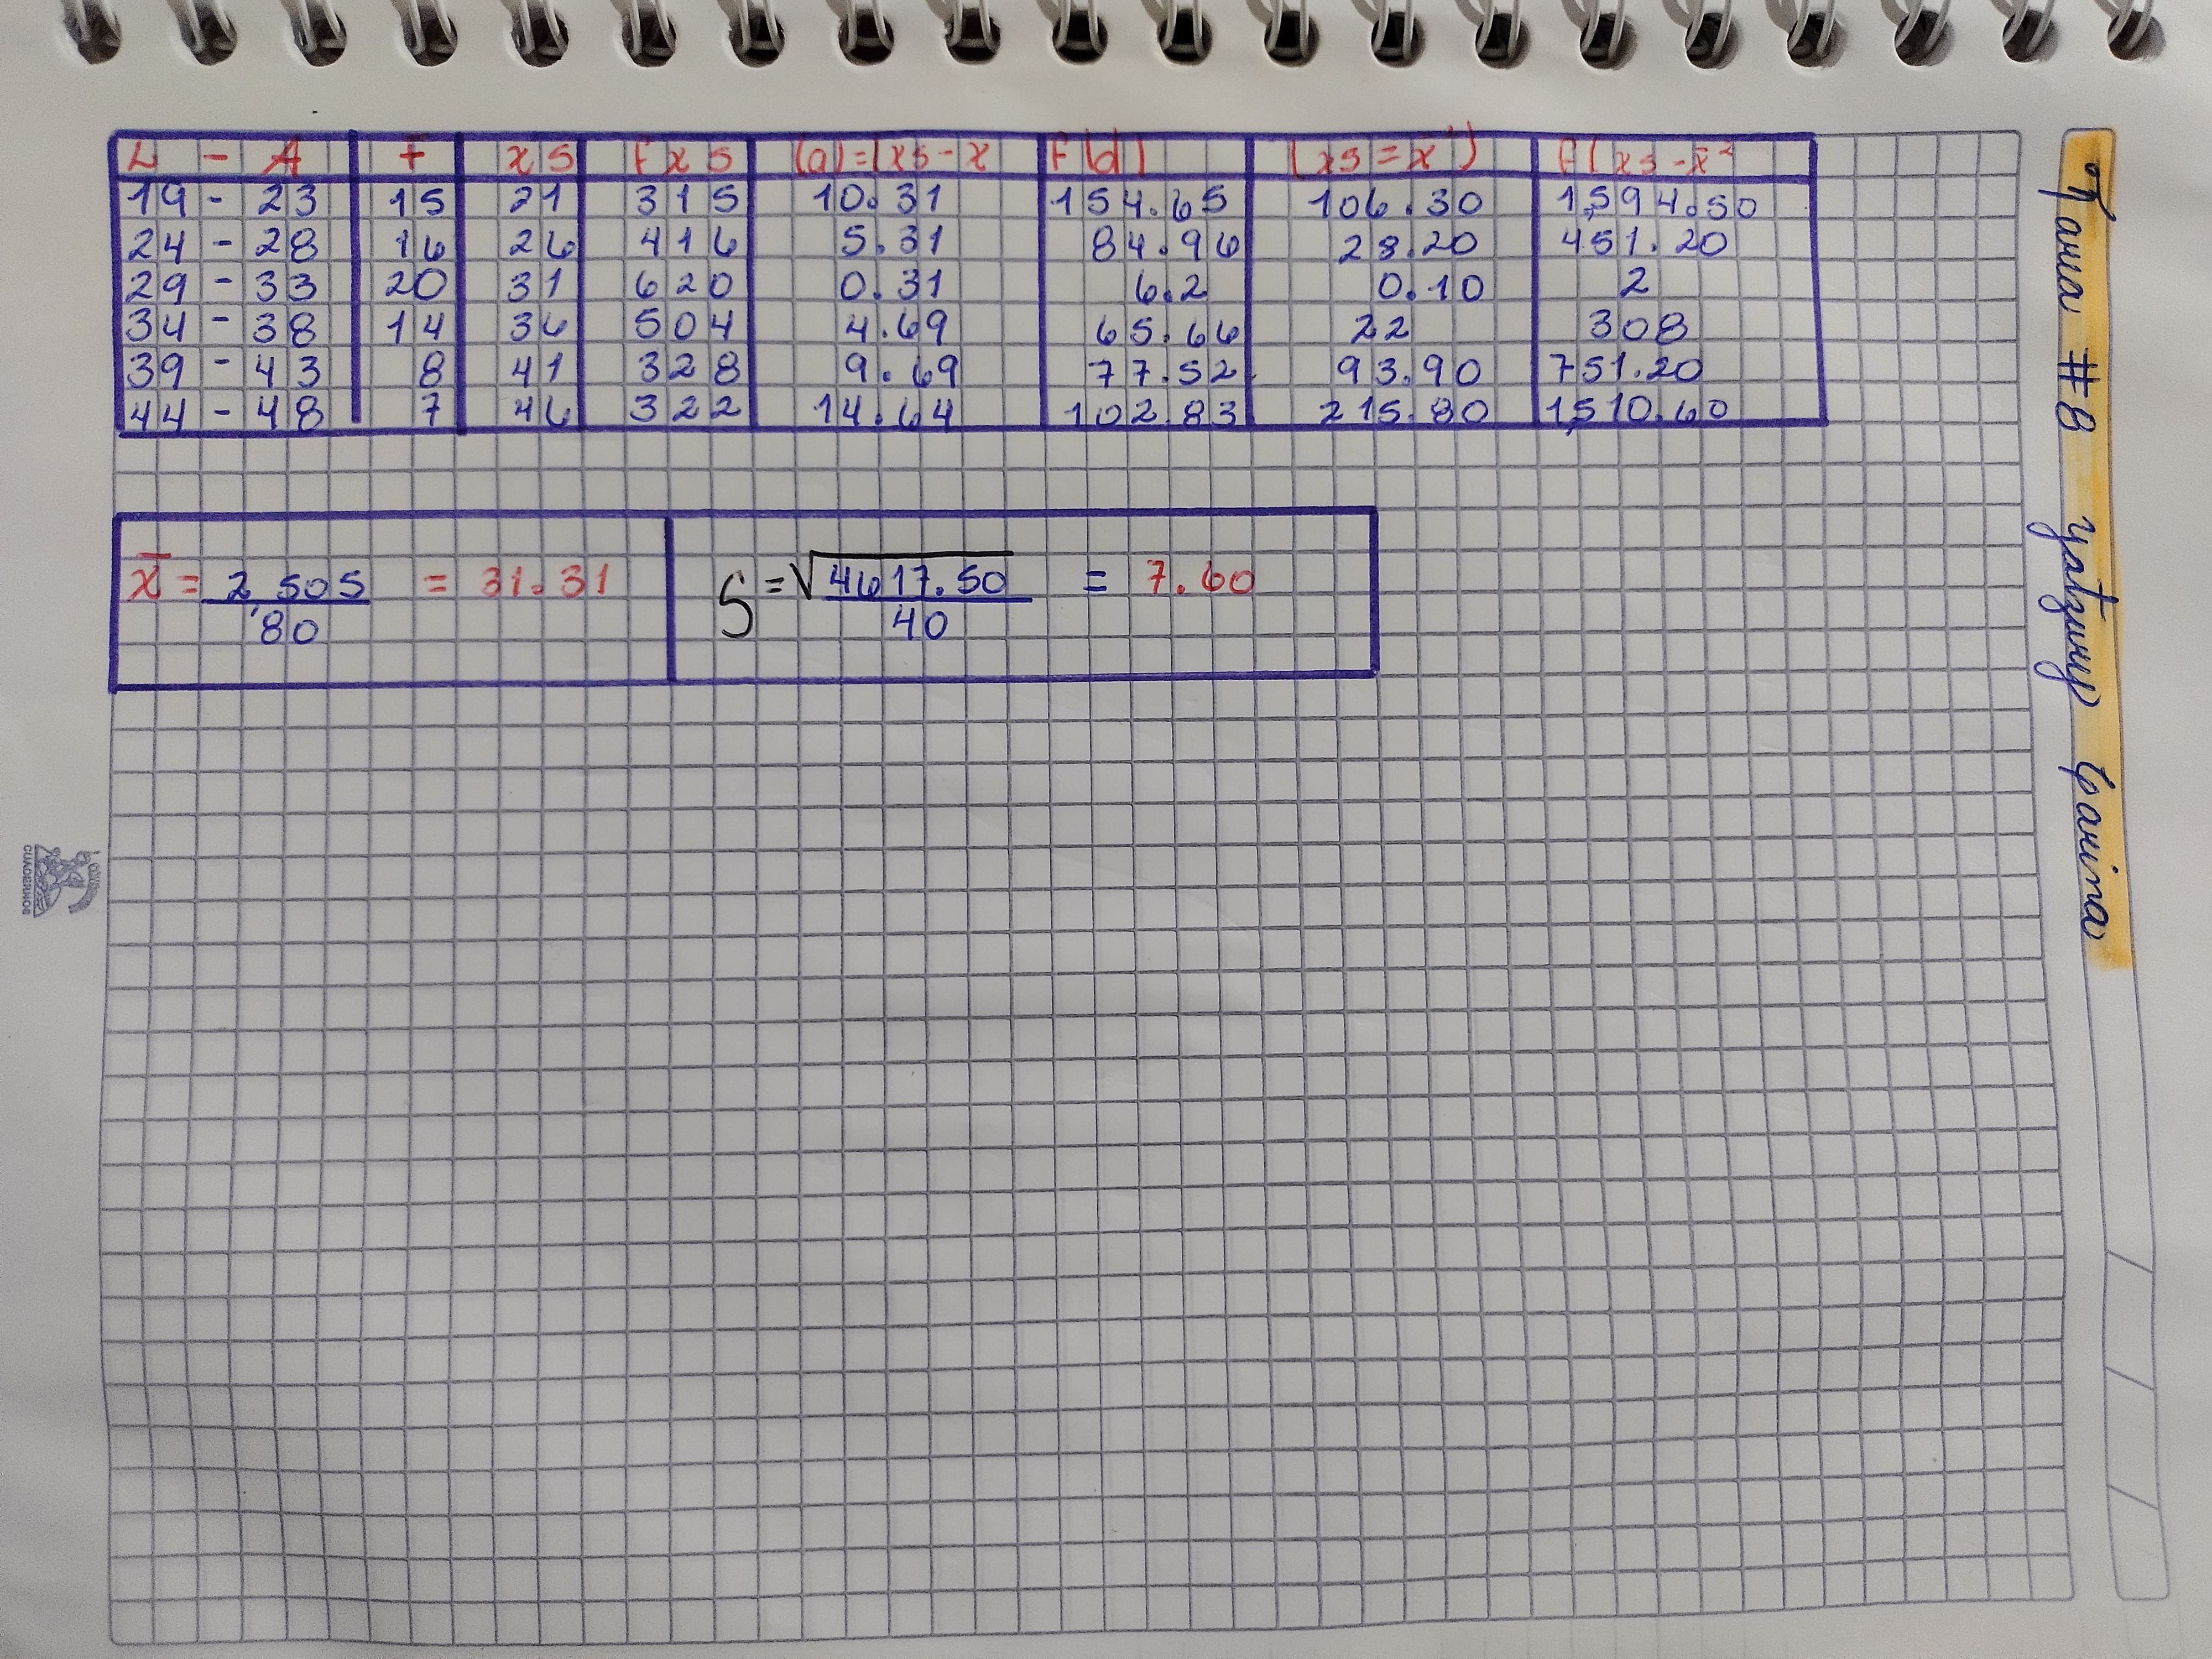 L - A F XS FXS (d)=(XS-X F(d) (XS=X̄²) F(XS-X̄²
19 - 23 15 21 315 10.31 154.65 106.30 1,594.50
24 - 28 16 26 416 5.31 84.96 28.20 451.20
29 - 33 20 31 620 0.31 6.2 0.10 2
34 - 38 14 36 504 4.69 65.66 22 308
39 - 43 8 41 328 9.69 77.52 93.90 751.20
44 - 48 7 46 322 14.64 102.83 215.80 1,510.60
x̄ = 2,505 = 31.31
80
S = √4617.50 = 7.60
40
#8
CUADERNOS